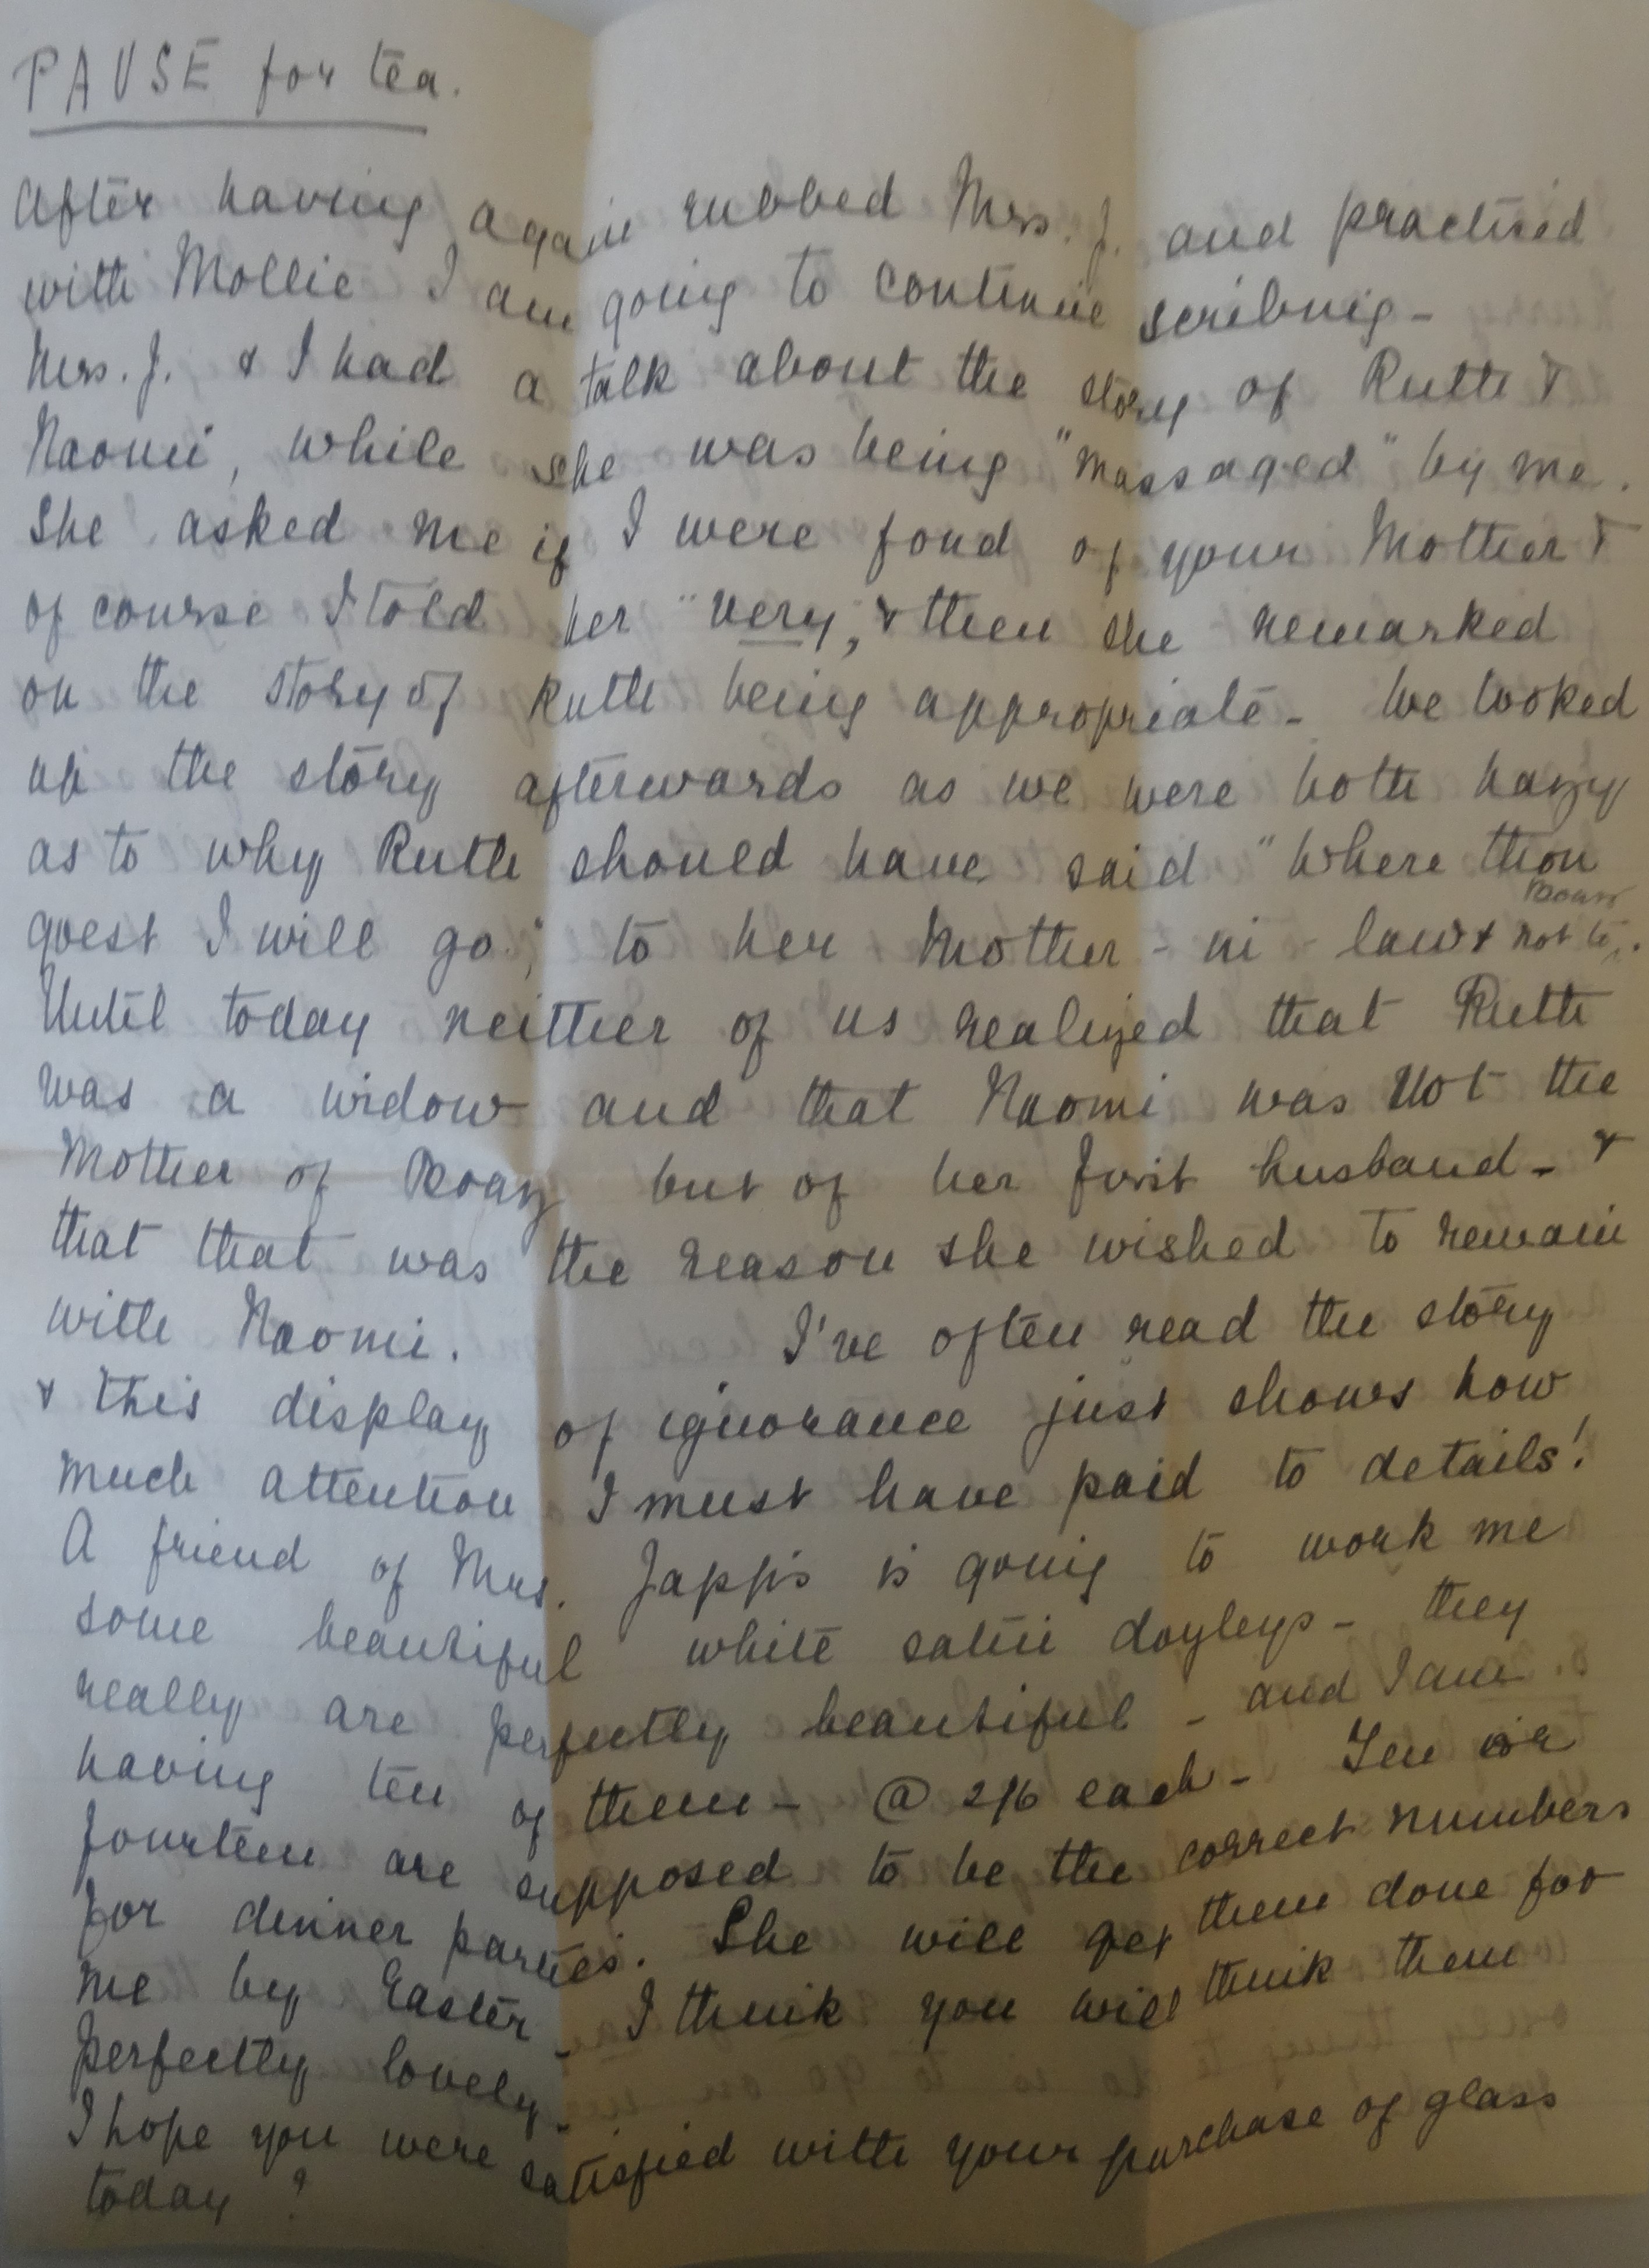 PAUSE for tea.
After having again rubbed Mrs. J. and practised
with Mollie I am going to continue scribing -
Mrs. J. & I had a talk about the story of Ruth &
Naomi, while she was being "massaged" by me.
She asked me if I were fond of your Mother &
of course I told her "very," & then she remarked
on the story of Ruth being appropriate - We looked
up the story afterwards as we were both hazy
as to why Ruth should have said "Where thou
goest I will go," to her Mother-in-law & not to Boaz.
Until today neither of us realized that Ruth
was a widow and that Naomi was not the
Mother of Boaz but of her first husband - &
that that was the reason she wished to remain
with Naomi. I've often read the story
& this display of ignorance just shows how
much attention I must have paid to details!
A friend of Mrs. Japp's is going to work me
some beautiful white satin doyleys - they
really are perfectly beautiful - and I am
having ten of them - @ 2/6 each - Ten or
fourteen are supposed to be the correct numbers
for dinner parties. She will get them done for
me by Easter - I think you will think them
perfectly lovely -
I hope you were satisfied with your purchase of glass
today?